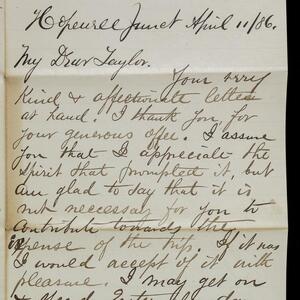 Hopewell Junct April 11/86.
My Dear Taylor.
Your very
kind & affectionate letter
at hand. I thank you for
your generous offer. I assure
you that I appreciate the
spirit that prompted it, but
am glad to say that it is
not neccesary for you to
contribute towards the
expense of the trip. If it was
I would accept of it with
pleasure. I may get on